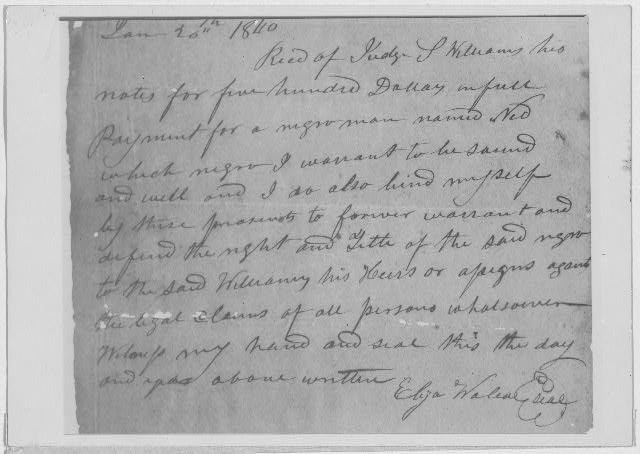 Jan 20th 1840
Recd of Judge S Williams his
notes for five hundred Dollars in full
Payment for a negro man named Ned
which negro I warrant to be sound
and well and I do also bind myself
by these presents to forever warrant and
defend the right and Title of the said negro
to the said Williams his Heirs or assigns against
the legal claims of all persons whatsoever
Witness my hand and seal this the day
and year above written
Eliza Seal